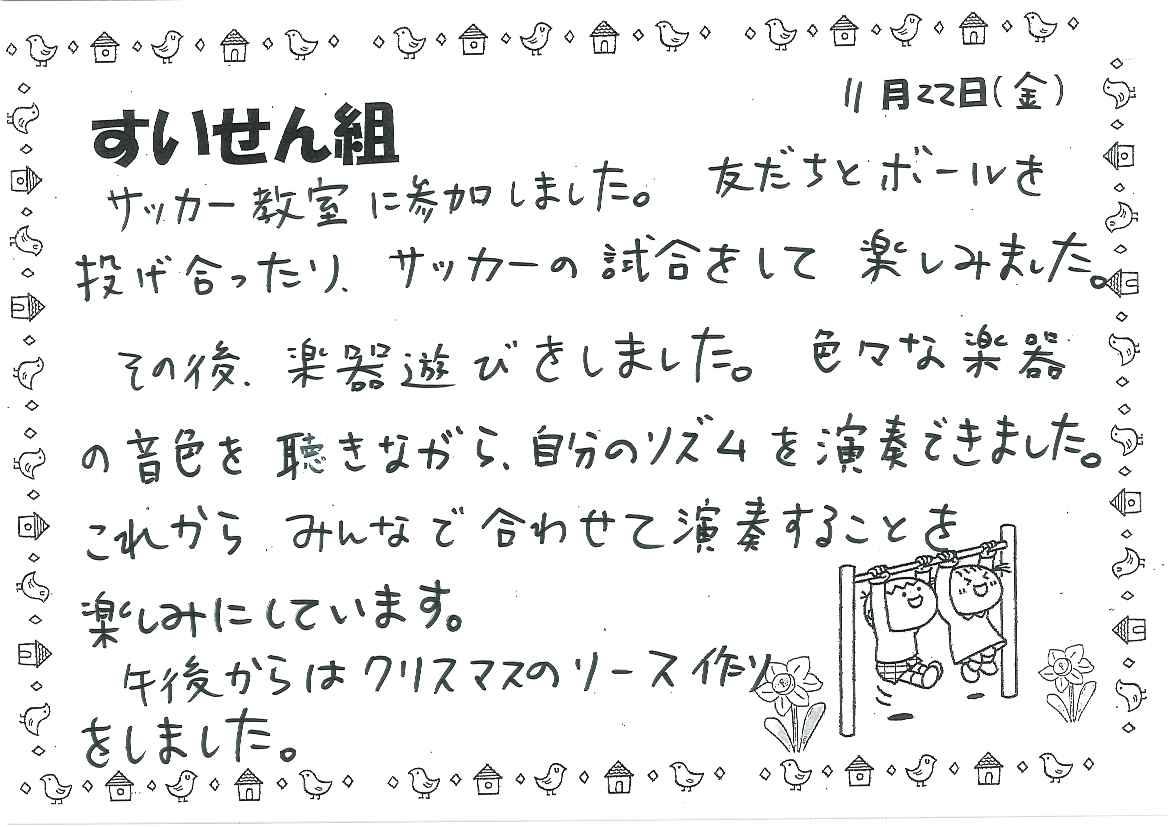 11月22日(金)
すいせん組
サッカー教室に参加しました。 友だちとボールを
投げ合ったり、サッカーの試合をして 楽しみました。
その後、楽器遊びをしました。 色々な楽器
の音色を聴きながら、自分のリズムを演奏できました。
これから みんなで合わせて演奏することを
楽しみにしています。
午後からはクリスマスのリース作り
をしました。